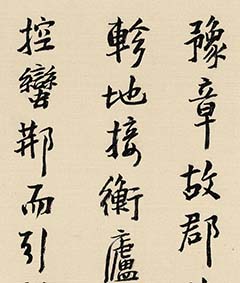 豫章故郡
軫地接衡廬
控蠻荆而引